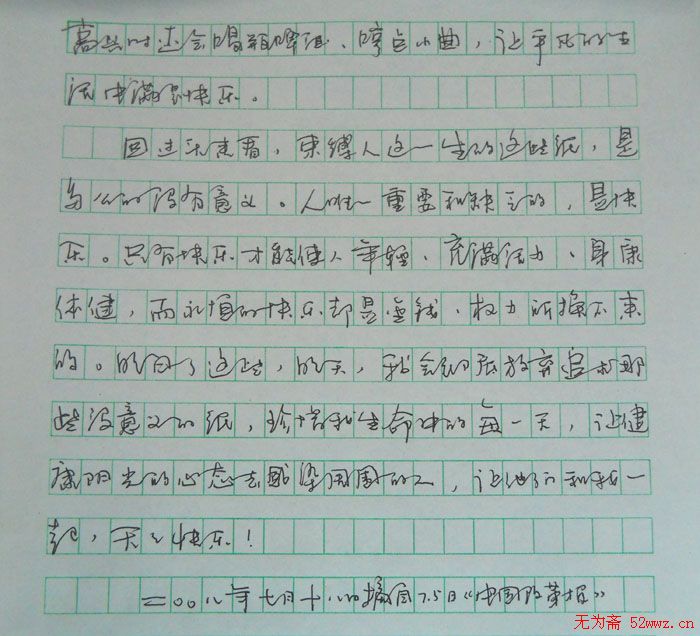 高兴时还会喝瓶啤酒、哼点小曲，让平凡的生
活中满是快乐。
回过头来看，束缚人这一生的这些纸，是
多么的没有意义。人唯一重要和缺乏的，是快
乐。只有快乐才能使人年轻、充满活力、身康
体健，而永恒的快乐却是金钱、权力所换不来
的。明白了这些，明天，我会彻底放弃追求那
些没意义的纸，珍惜我生命中的每一天，让健
康阳光的心态去感染周围的人，让他们和我一
起，天天快乐！
二〇〇八年七月十八日摘自7.5日《中国改革报》
无为斋 52wwz.cn